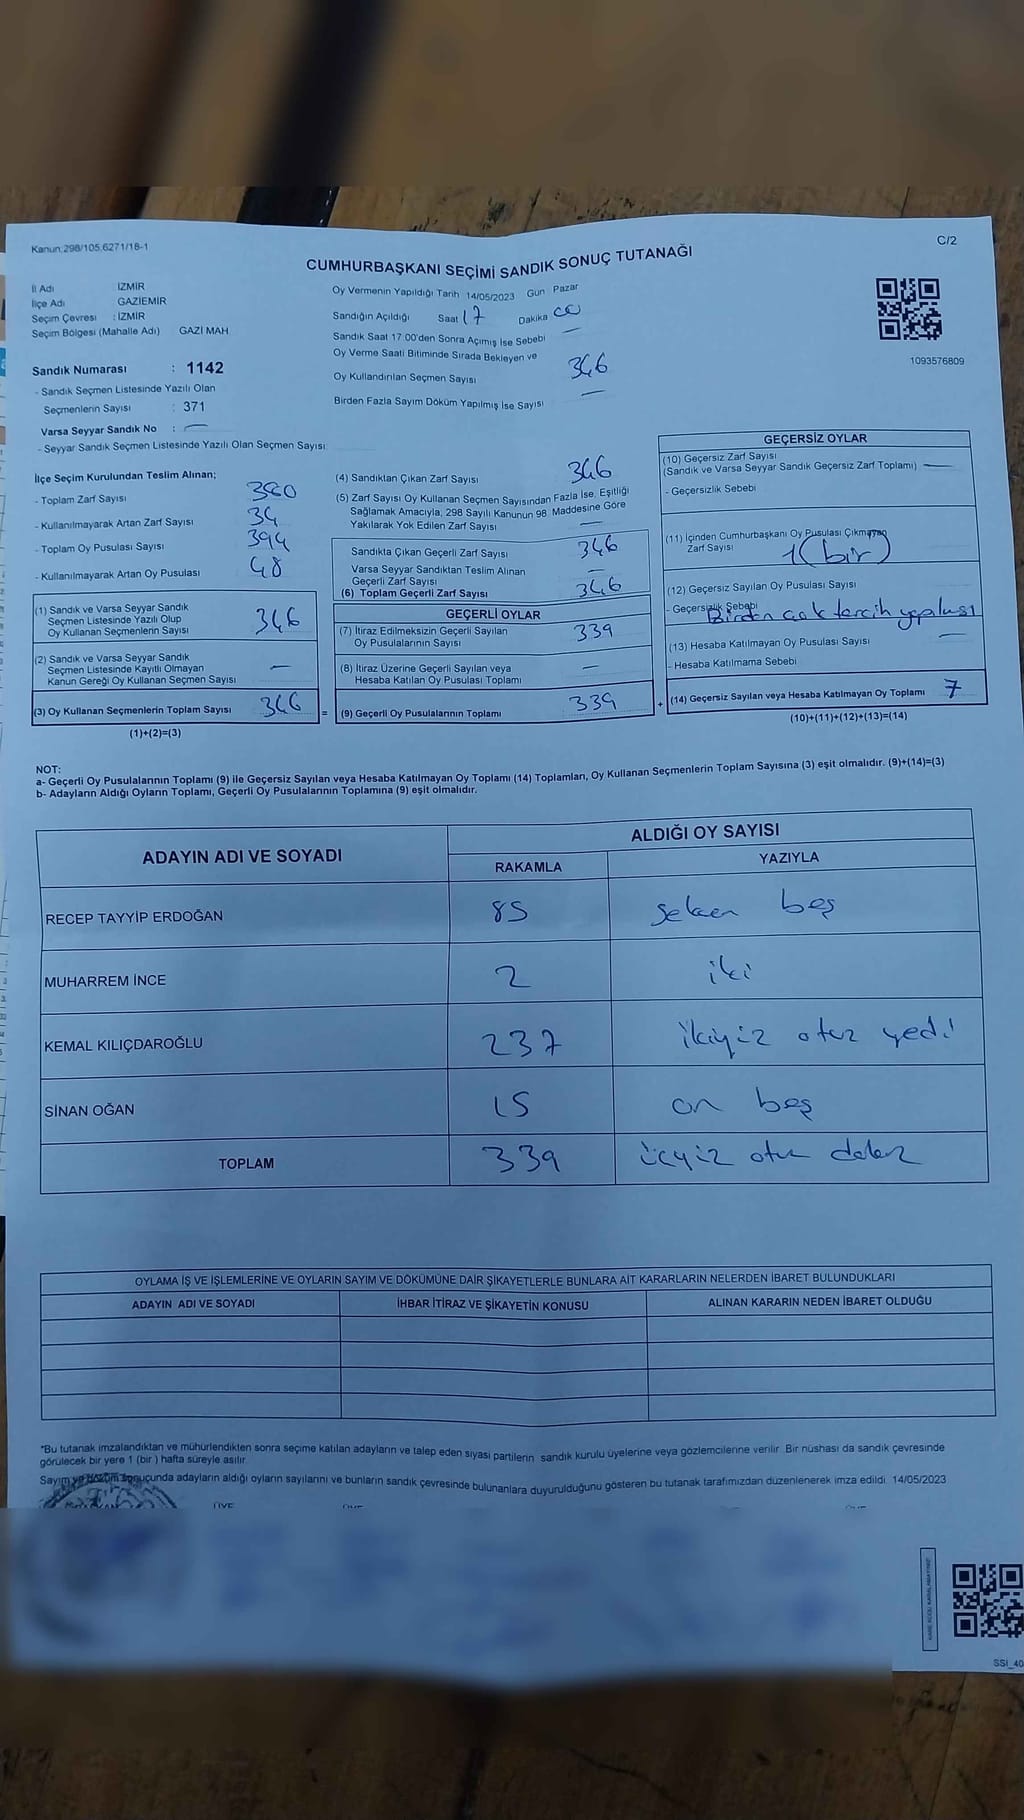 Kanun:298/105,6271/18-1
C/2
CUMHURBAŞKANI SEÇİMİ SANDIK SONUÇ TUTANAĞI
İl Adı İZMİR
İlçe Adı GAZİEMİR
Seçim Çevresi : İZMİR
Seçim Bölgesi (Mahalle Adı) GAZİ MAH
Sandık Numarası : 1142
- Sandık Seçmen Listesinde Yazılı Olan
Seçmenlerin Sayısı : 371
Varsa Seyyar Sandık No : —
- Seyyar Sandık Seçmen Listesinde Yazılı Olan Seçmen Sayısı
Oy Vermenin Yapıldığı Tarih 14/05/2023 Gün Pazar
Sandığın Açıldığı Saat 17 Dakika 00
Sandık Saat 17:00'den Sonra Açımış İse Sebebi —
Oy Verme Saati Bitiminde Sırada Bekleyen ve
Oy Kullandırılan Seçmen Sayısı 346
Birden Fazla Sayım Döküm Yapılmış İse Sayısı —
1093576809
İlçe Seçim Kurulundan Teslim Alınan;
- Toplam Zarf Sayısı 380
- Kullanılmayarak Artan Zarf Sayısı 34
- Toplam Oy Pusulası Sayısı 394
- Kullanılmayarak Artan Oy Pusulası 48
(1) Sandık ve Varsa Seyyar Sandık
Seçmen Listesinde Yazılı Olup
Oy Kullanan Seçmenlerin Sayısı 346
(2) Sandık ve Varsa Seyyar Sandık
Seçmen Listesinde Kayıtlı Olmayan
Kanun Gereği Oy Kullanan Seçmen Sayısı —
(3) Oy Kullanan Seçmenlerin Toplam Sayısı 346
=
(1)+(2)=(3)
(4) Sandıktan Çıkan Zarf Sayısı 346
(5) Zarf Sayısı Oy Kullanan Seçmen Sayısından Fazla İse, Eşitliği
Sağlamak Amacıyla, 298 Sayılı Kanunun 98. Maddesine Göre
Yakılarak Yok Edilen Zarf Sayısı —
Sandıkta Çıkan Geçerli Zarf Sayısı 346
Varsa Seyyar Sandıktan Teslim Alınan
Geçerli Zarf Sayısı —
(6) Toplam Geçerli Zarf Sayısı 346
GEÇERLİ OYLAR
(7) İtiraz Edilmeksizin Geçerli Sayılan
Oy Pusulalarının Sayısı 339
(8) İtiraz Üzerine Geçerli Sayılan veya
Hesaba Katılan Oy Pusulası Toplamı —
(9) Geçerli Oy Pusulalarının Toplamı 339
+
GEÇERSİZ OYLAR
(10) Geçersiz Zarf Sayısı
(Sandık ve Varsa Seyyar Sandık Geçersiz Zarf Toplamı) —
- Geçersizlik Sebebi
(11) İçinden Cumhurbaşkanı Oy Pusulası Çıkmayan
Zarf Sayısı 1 (bir)
(12) Geçersiz Sayılan Oy Pusulası Sayısı
- Geçersizlik Sebebi Birden çok tercih yapılması
(13) Hesaba Katılmayan Oy Pusulası Sayısı —
- Hesaba Katılmama Sebebi
(14) Geçersiz Sayılan veya Hesaba Katılmayan Oy Toplamı 7
(10)+(11)+(12)+(13)=(14)
NOT:
a- Geçerli Oy Pusulalarının Toplamı (9) ile Geçersiz Sayılan veya Hesaba Katılmayan Oy Toplamı (14) Toplamları, Oy Kullanan Seçmenlerin Toplam Sayısına (3) eşit olmalıdır. (9)+(14)=(3)
b- Adayların Aldığı Oyların Toplamı, Geçerli Oy Pusulalarının Toplamına (9) eşit olmalıdır.
ADAYIN ADI VE SOYADI
ALDIĞI OY SAYISI
RAKAMLA YAZIYLA
RECEP TAYYİP ERDOĞAN 85 seksen beş
MUHARREM İNCE 2 iki
KEMAL KILIÇDAROĞLU 237 ikiyüz otuz yedi
SİNAN OĞAN 15 on beş
TOPLAM 339 üçyüz otuz dokuz
OYLAMA İŞ VE İŞLEMLERİNE VE OYLARIN SAYIM VE DÖKÜMÜNE DAİR ŞİKAYETLERLE BUNLARA AİT KARARLARIN NELERDEN İBARET BULUNDUKLARI
ADAYIN ADI VE SOYADI İHBAR İTİRAZ VE ŞİKAYETİN KONUSU ALINAN KARARIN NEDEN İBARET OLDUĞU
*Bu tutanak imzalandıktan ve mühürlendikten sonra seçime katılan adayların ve talep eden siyasi partilerin sandık kurulu üyelerine veya gözlemcilerine verilir. Bir nüshası da sandık çevresinde
görülecek bir yere 1 (bir ) hafta süreyle asılır.
Sayım ve döküm sonucunda adayların aldığı oyların sayılarını ve bunların sandık çevresinde bulunanlara duyurulduğunu gösteren bu tutanak tarafımızdan düzenlenerek imza edildi. 14/05/2023
ÜYE
SSI_40